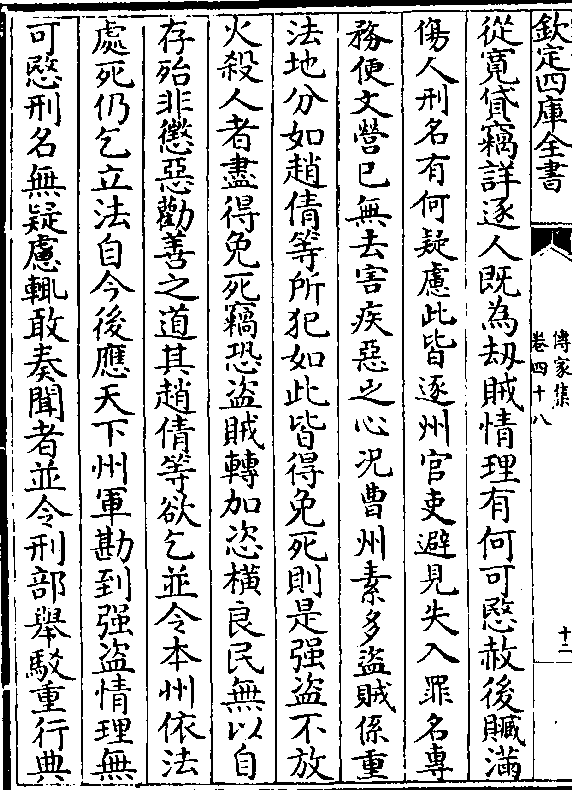 欽定四庫全書
傳家集
卷四十八
十二
從寛貸竊詳逐人既為刼賊情理有何可愍赦後贓滿
傷人刑名有何疑慮此皆逐州官吏避見失入罪名專
務便文營已無去害疾惡之心况曹州素多盜賊係重
法地分如趙倩等所犯如此皆得免死則是强盜不放
火殺人者盡得免死竊恐盜賊轉加恣橫良民無以自
存殆非懲惡勸善之道其趙倩等欲乞並令本州依法
處死仍乞立法自今後應天下州軍勘到强盜情理無
可愍刑名無疑慮輒敢奏聞者並令刑部舉駁重行典